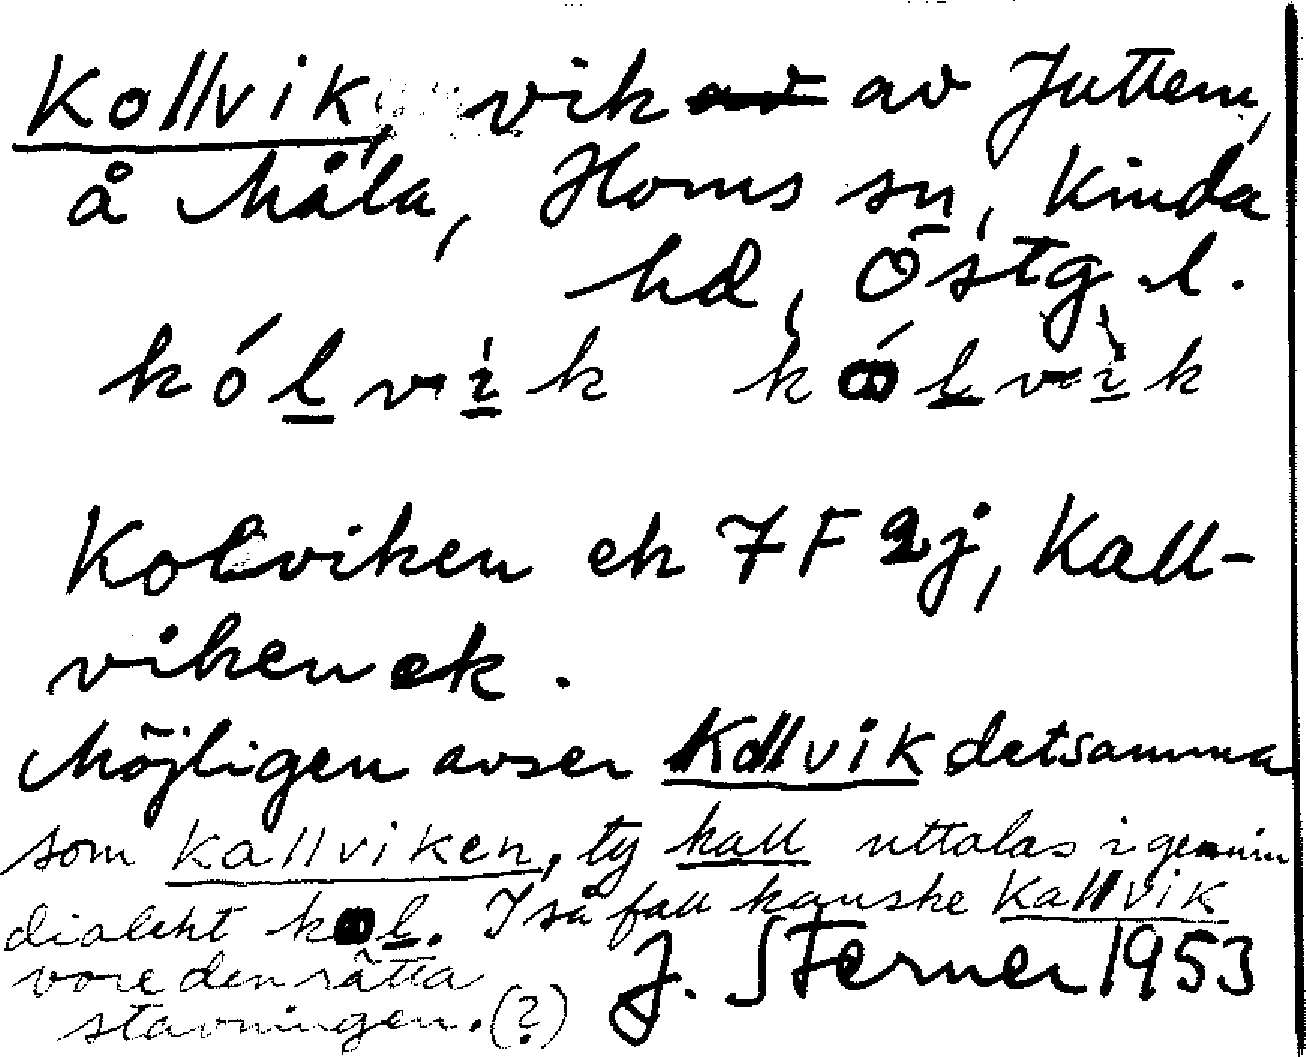 Kollvik, vik av Juttern,
å Måla, Horns sn, Kinda
hd, Östg. l.
kólvìk kólvìk
Kolviken ek 7F2j, Kall-
viken ek.
Möjligen avser Kollvik detsamma
som Kallviken, ty kall uttalas i genuin
dialekt kol. I så fall kanske Kallvik
vore den rätta
stavningen. (?) J. Sterner 1953